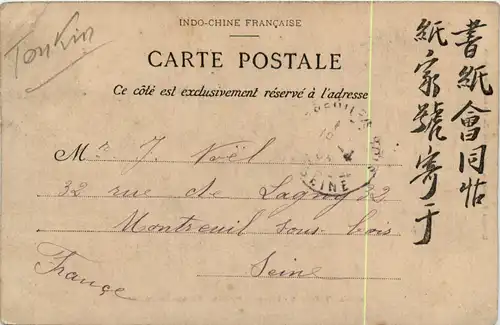 Tonkin
INDO-CHINE FRANÇAISE
CARTE POSTALE
Ce côté est exclusivement réservé à l'adresse
Mr J. Noël
32 rue de Lagny 32
Montreuil sous bois
Seine
France
SEINE
書紙會同帖
紙家號寄于